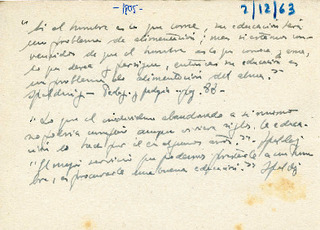 -1805-
2/12/63
"Si el hombre es lo que come, su educación será
un problema de alimentación; mas si estamos con-
vencidos de que el hombre es lo que come y ama,
lo que desea y persigue, entonces su educación es
un problema de alimentación del alma."
Spalding - Pedag. y pág. 88 -
"Lo que el individuo abandonado a sí mismo
no podría cumplir aunque viviera siglos, la educa-
ción lo hace por él en algunos años." Spalding
"El mejor servicio que podemos prestarle a un hom-
bre, es procurarle una buena educación." Spalding